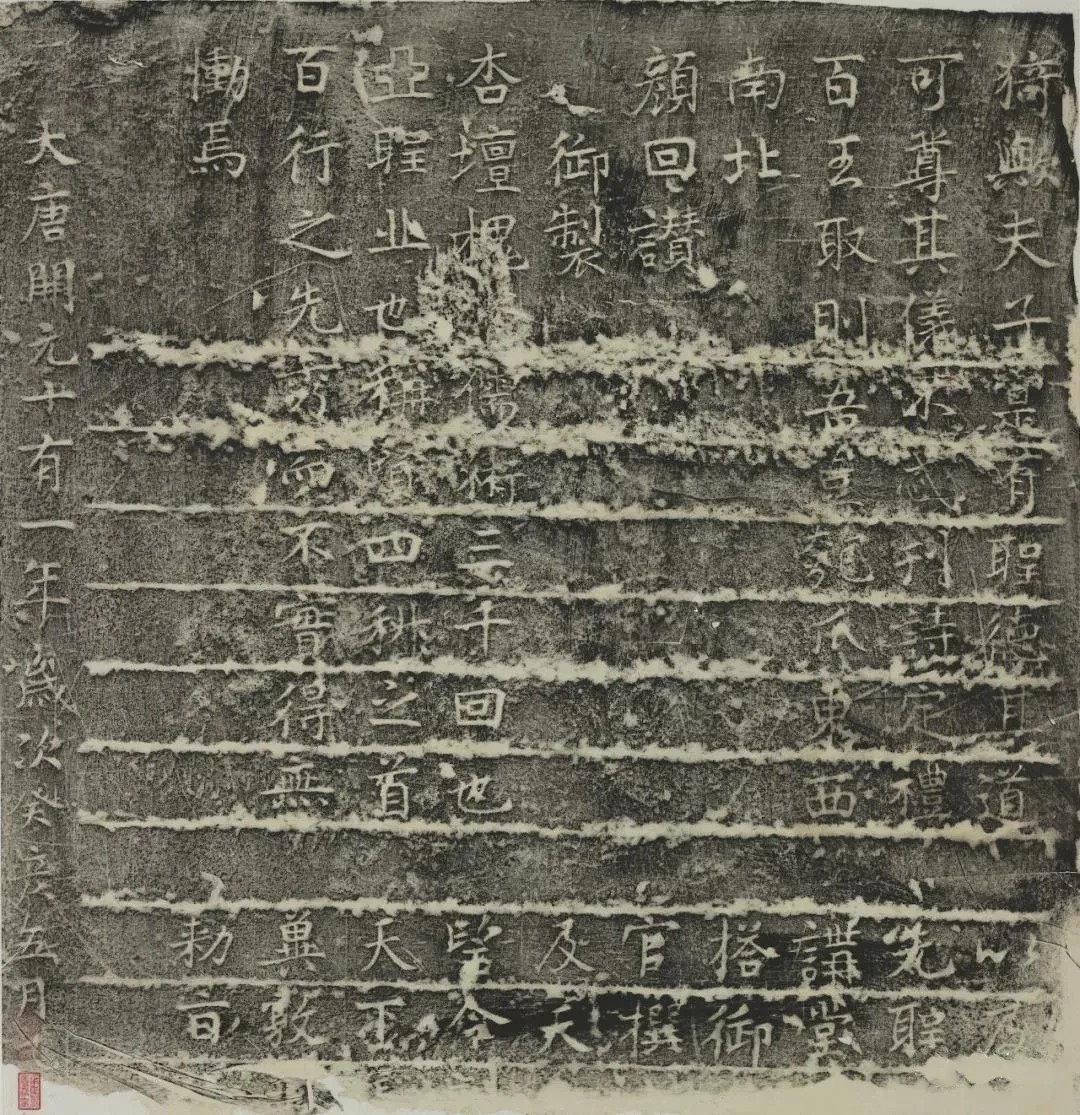 猗輿夫子是有聖德其道以
可尊其儀不忒刊詩定禮先聖
百王取則吾豈匏瓜東西講堂
南北搭御
顏回讚官撰
御製及天
杏壇槐儒術三千回也望令
亞聖業也稱賢四科之首天下
百行之先秀而不實得無冀敦
慟焉勅旨
大唐開元十有一年歲次癸亥五月